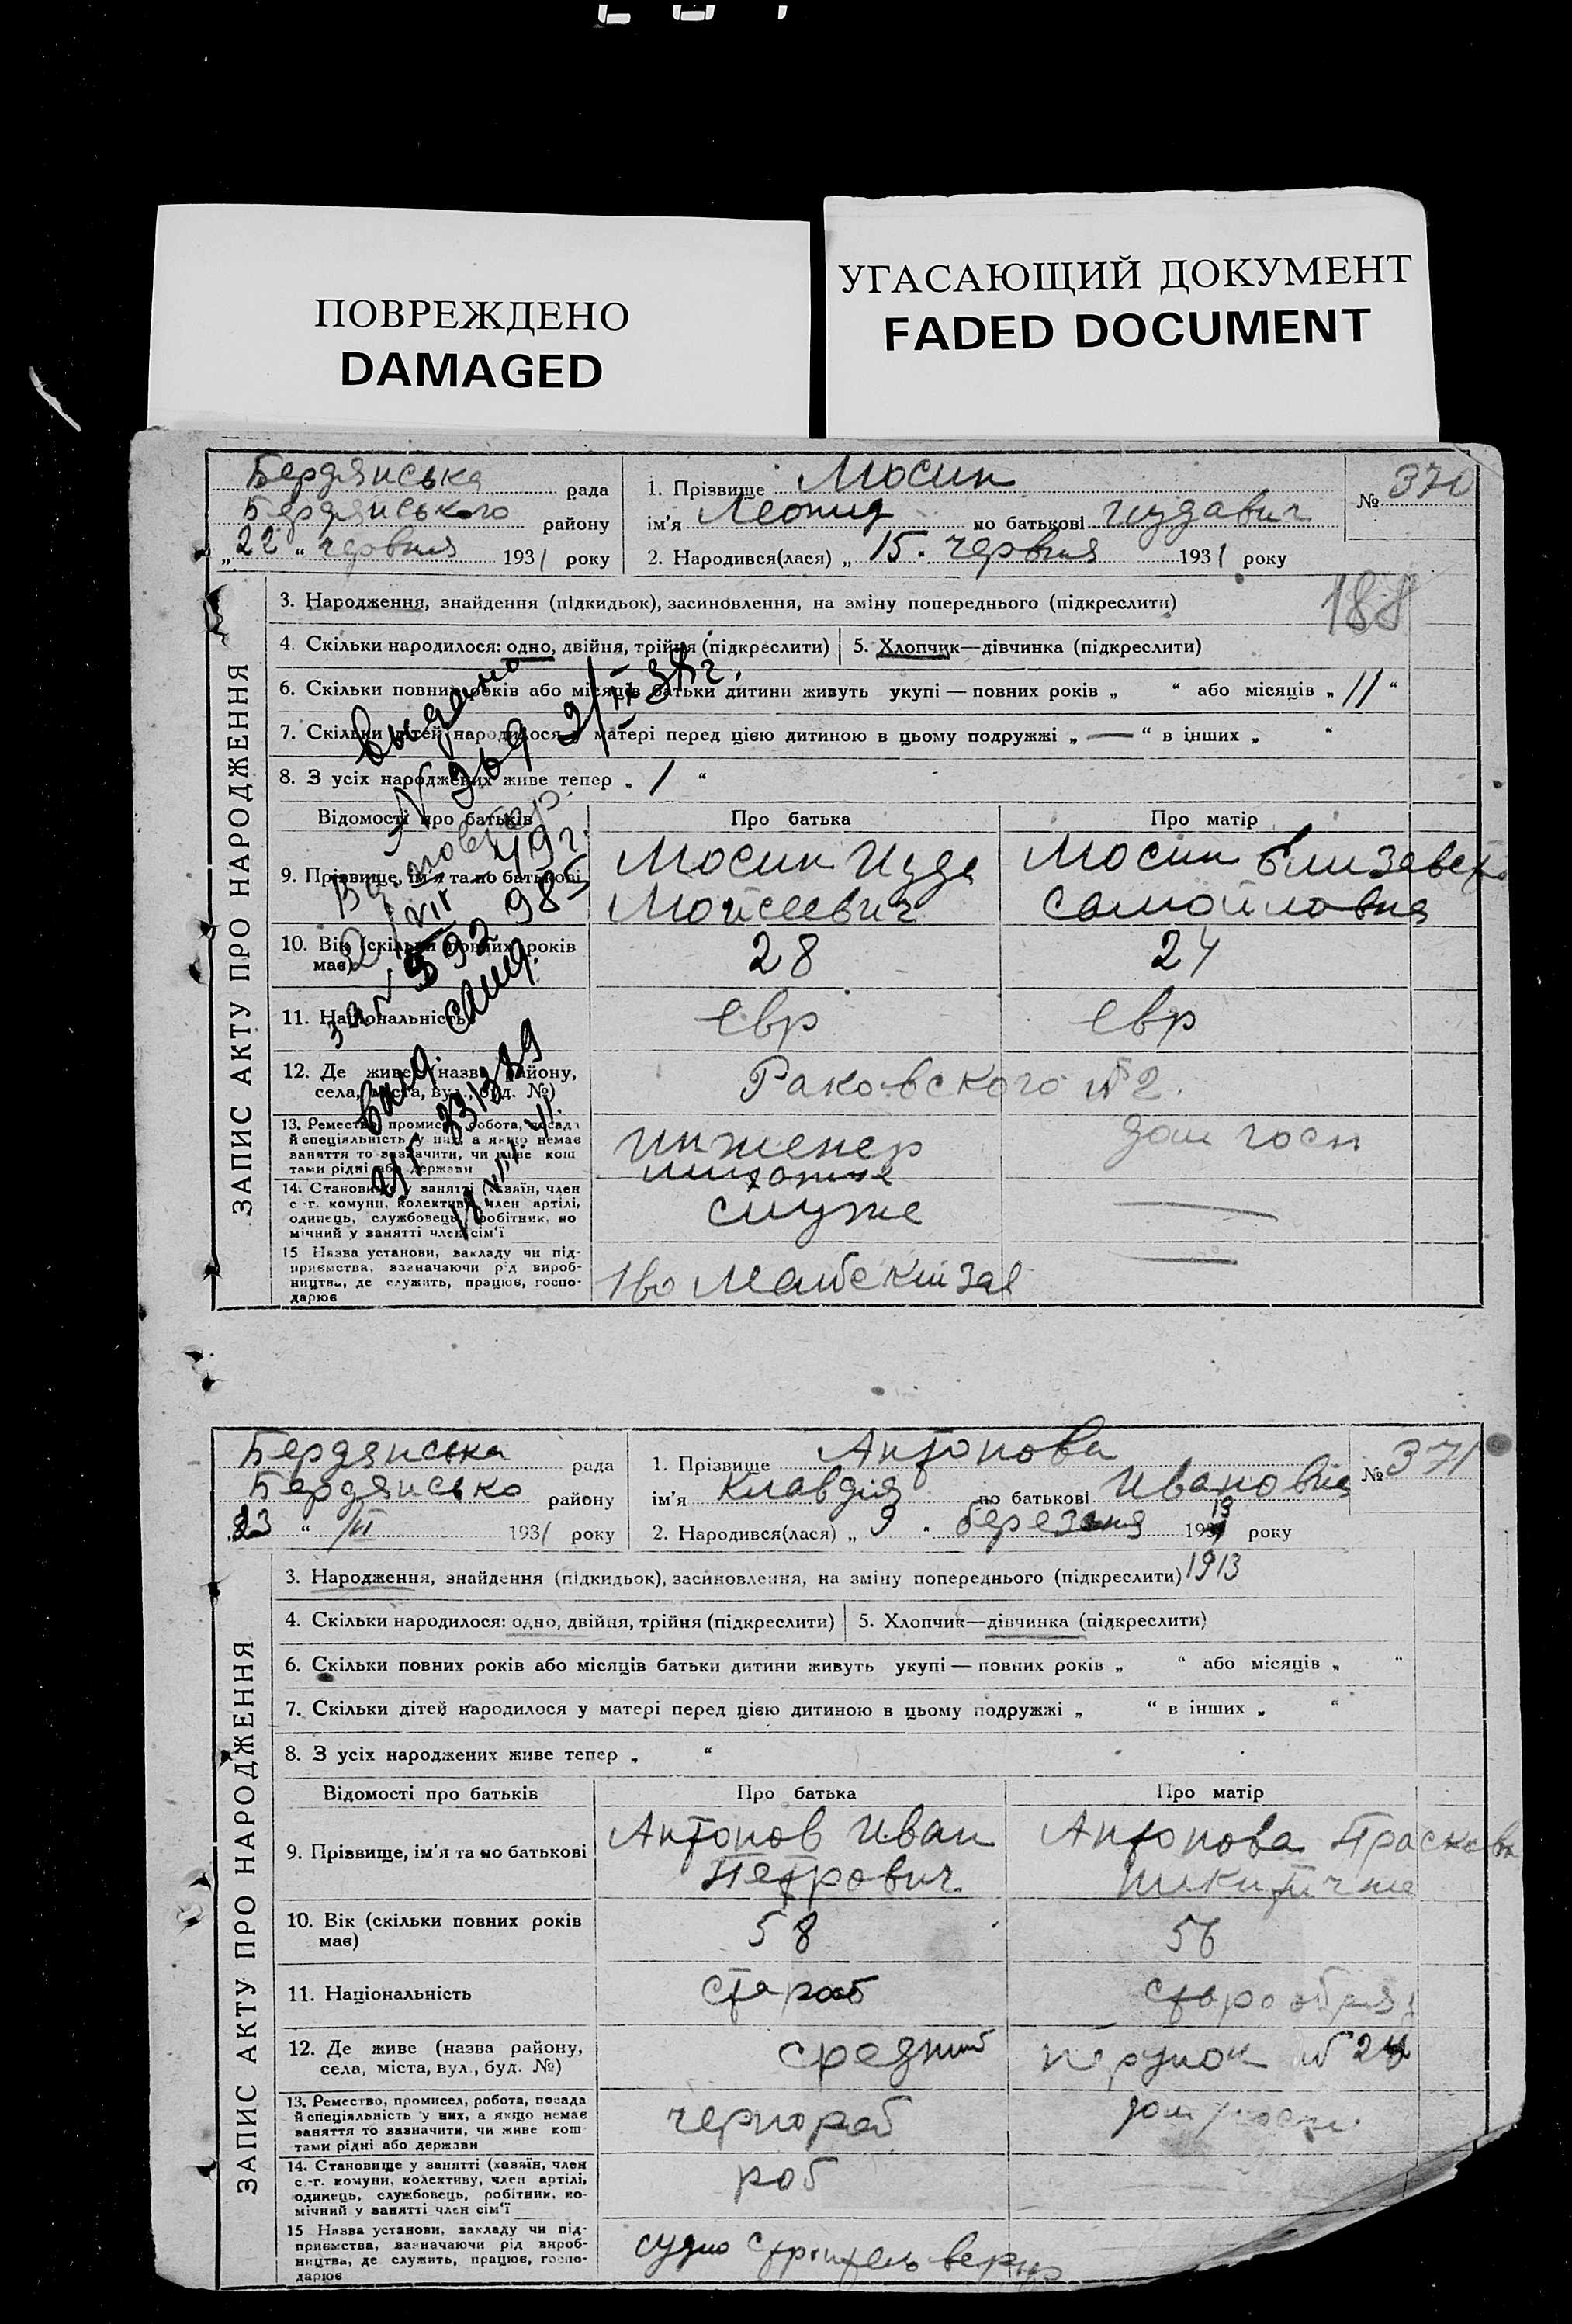 ПОВРЕЖДЕНО
DAMAGED
УГАСАЮЩИЙ ДОКУМЕНТ
FADED DOCUMENT
Бердянська рада
Бердянського району
„22“ червня 1931 року
1. Прізвище Мосин
ім'я Леонид по батькові Иудавич
2. Народився(лася) „15. червня 1931 року
№ 370
188
ЗАПИС АКТУ ПРО НАРОДЖЕННЯ
3. Народження, знайдення (підкидьок), засиновлення, на зміну попереднього (підкреслити)
4. Скільки народилося: одно, двійня, трійня (підкреслити) 5. Хлопчик—дівчинка (підкреслити)
6. Скільки повних років або місяців батьки дитини живуть укупі — повних років „ “ або місяців „ 11 “
7. Скільки дітей народилося у матері перед цією дитиною в цьому подружжі „ — “ в інших „ “
8. З усіх народжених живе тепер „ 1 “
Відомості про батьків Про батька Про матір
9. Прізвище, ім'я та по батькові
Мосин Иуда
Мойсеевич
Мосин Елизавета
Самойловна
10. Вік (скільки повних років має) 28 24
11. Національність евр евр
12. Де живе (назва району,
села, міста, вул., буд. №)
Раковского №2.
13. Ремество, промисел, робота, посада
й спеціяльність у них, а якщо немає
заняття то зазначити, чи живе кош
тами рідні або держави
инженер
дом госп
14. Становище у занятті (хазяїн, член
с.-г. комуни, колективу, член артілі,
одинець, службовець, робітник, по
мічний у занятті член сім'ї
служе
15 Назва установи, закладу чи під-
приємства, зазначаючи рід вироб-
ництва, де служить, працює, госпо-
дарює
1во Майский зав
Бердянська рада
Бердянсько району
23 “ VI 1931 року
1. Прізвище Антонова
ім'я Клавдія по батькові Ивановна
2. Народився(лася) „ 9 . березня 1913 року
№ 371
1913
ЗАПИС АКТУ ПРО НАРОДЖЕННЯ
3. Народження, знайдення (підкидьок), засиновлення, на зміну попереднього (підкреслити)
4. Скільки народилося: одно, двійня, трійня (підкреслити) 5. Хлопчик—дівчинка (підкреслити)
6. Скільки повних років або місяців батьки дитини живуть укупі — повних років „ “ або місяців „ “
7. Скільки дітей народилося у матері перед цією дитиною в цьому подружжі „ “ в інших „ “
8. З усіх народжених живе тепер „ “
Відомості про батьків Про батька Про матір
9. Прізвище, ім'я та по батькові
Антонов Иван
Петрович
Антонова Прасковя
10. Вік (скільки повних років
має)
58 56
11. Національність староб старообряд
12. Де живе (назва району,
села, міста, вул., буд. №)
средний
№ 24
13. Ремество, промисел, робота, посада
й спеціяльність у них, а якщо немає
заняття то зазначити, чи живе кош
тами рідні або держави
чернораб
дом госп
14. Становище у занятті (хазяїн, член
с.-г. комуни, колективу, член артілі,
одинець, службовець, робітник, по-
мічний у занятті член сім'ї
роб
15 Назва установи, закладу чи під-
приємства, зазначаючи рід вироб-
ництва, де служить, працює, госпо-
дарює
судно строитель верф